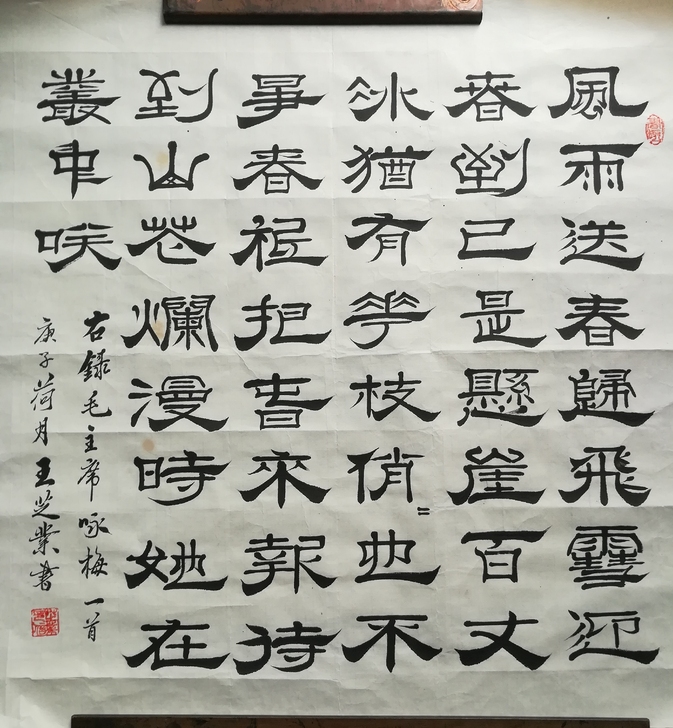 風雨送春歸飛雪迎
春到已是懸崖百丈
冰猶有華枝俏〻也不
爭春祗把春來報待
到山花爛漫時她在
叢中咲
右錄毛主席咏梅一首
庚子荷月王芝業書